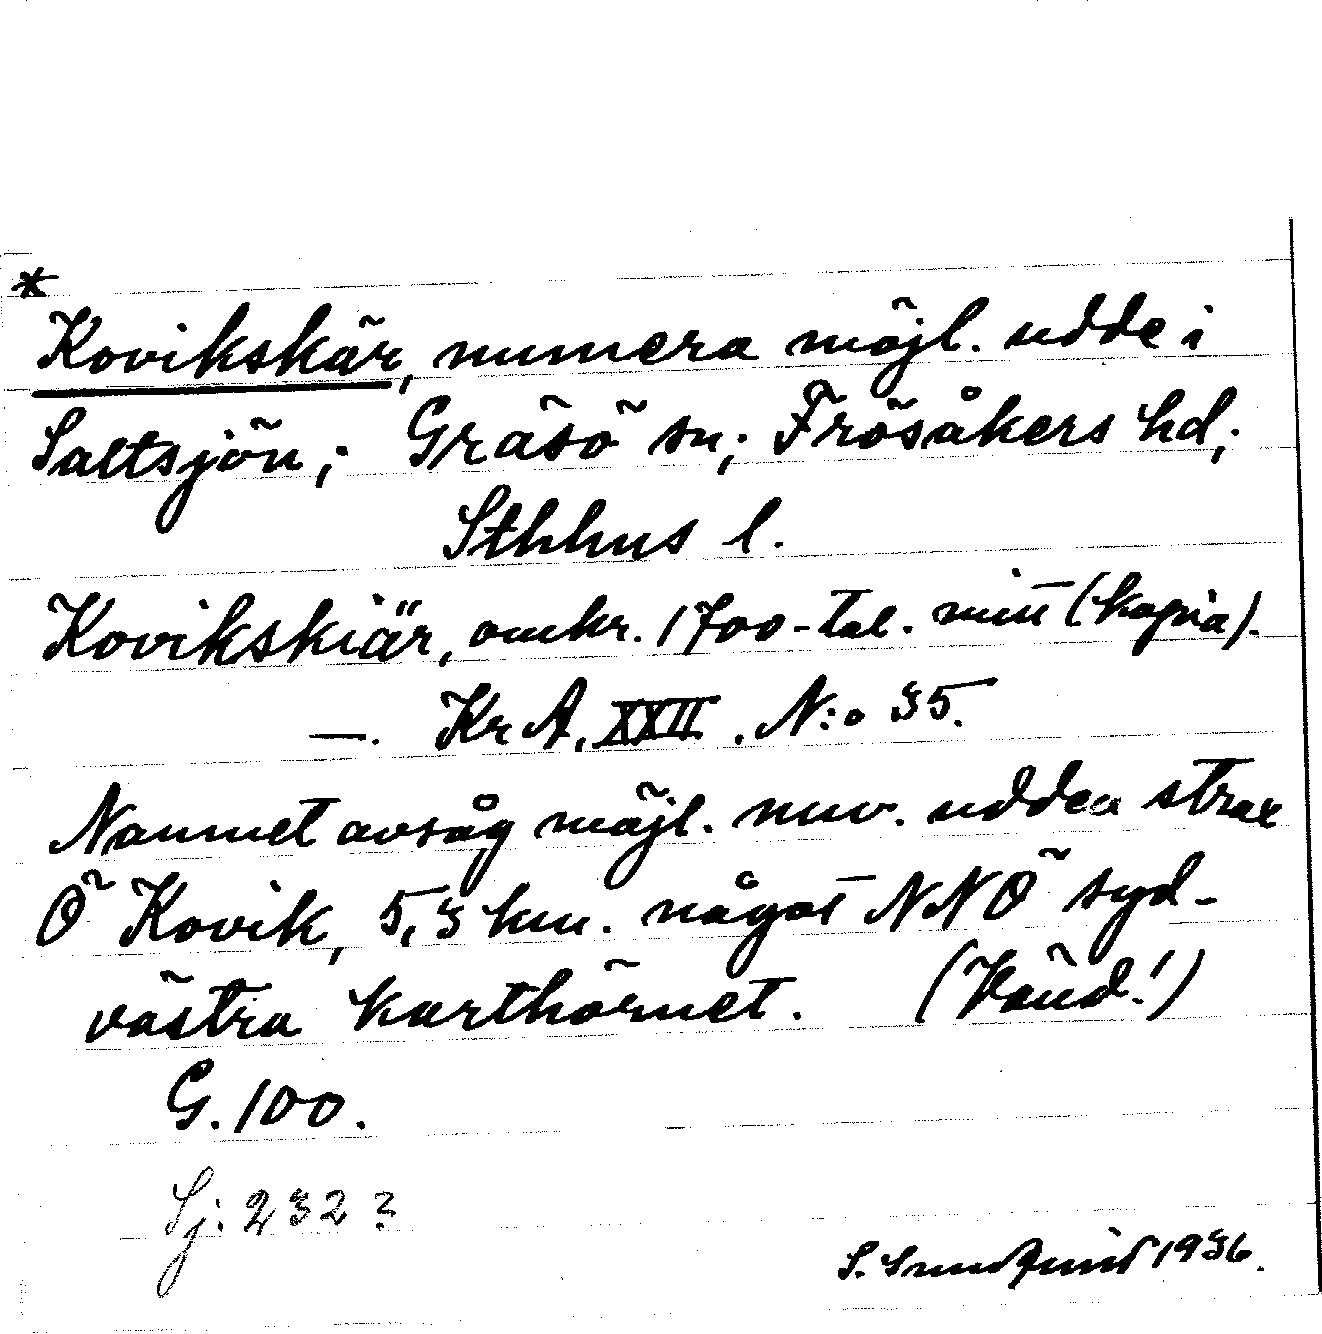 *
Kovikskär, numera möjl. udde i
Saltsjön; Gräsö sn; Frösåkers hd;
Sthhus l.
Kovikskiär, omkr. 1700-tal. (kopia).
—. KrA, XXII. N:o 35.
Namnet avsåg möjl. nuv. udden strax
Ö Kovik, 5,3 km. något NNÖ syd-
västra karthörnet. (Vänd!)
G. 100.
Sj: 232?
S. 1936.